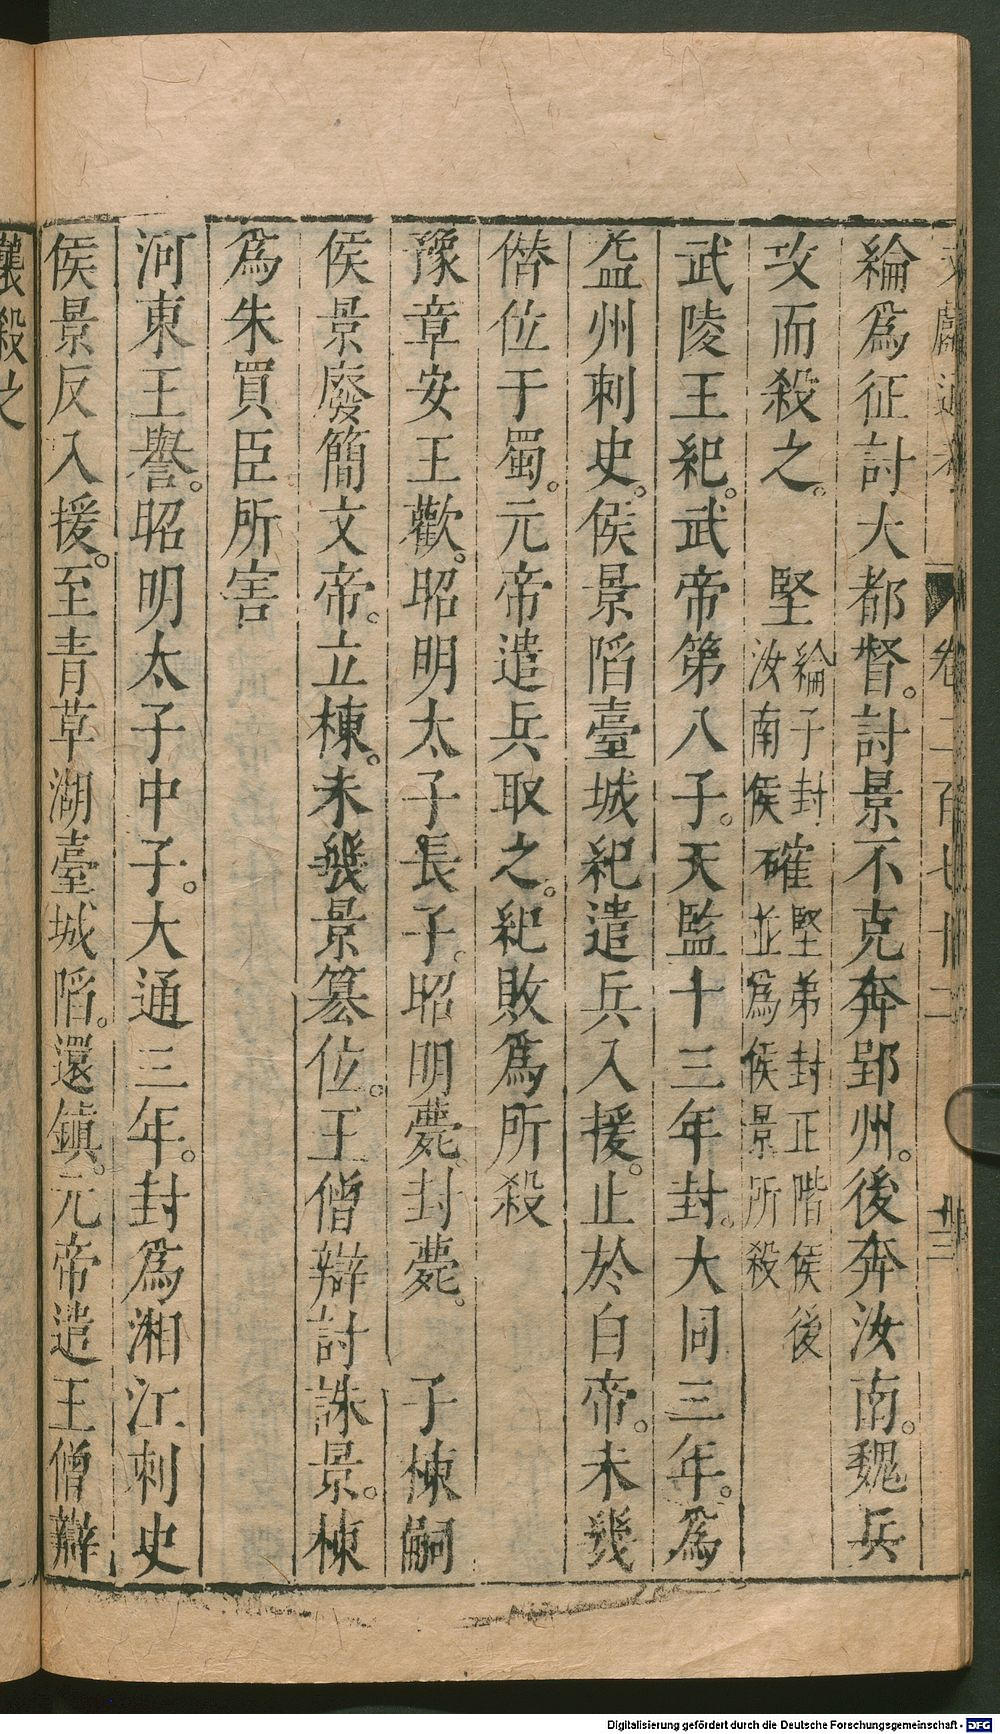 綸爲征討大都督。討景不克奔郢州。後奔汝南。魏兵
攻而殺之。　堅綸子封汝南侯確堅弟封正階侯後並爲侯景所殺
武陵王紀。武帝第八子。天監十三年封。大同三年。爲
益州刺史。侯景陷臺城紀遣兵入援。止於白帝。未幾
僭位于蜀。元帝遣兵取之。紀敗爲所殺
豫章安王歡。昭明太子長子。昭明薨。封薨。　子棟嗣
侯景廢簡文帝。立棟。未幾景篡位。王僧辯討誅景。棟
爲朱買臣所害
河東王譽。昭明太子中子。大通三年。封爲湘江刺史
侯景反入援。至青草湖臺城陷。還鎮。元帝遣王僧辯
襲殺之
卷二百七十二
Digitalisierung gefördert durch die Deutsche Forschungsgemeinschaft - DFG